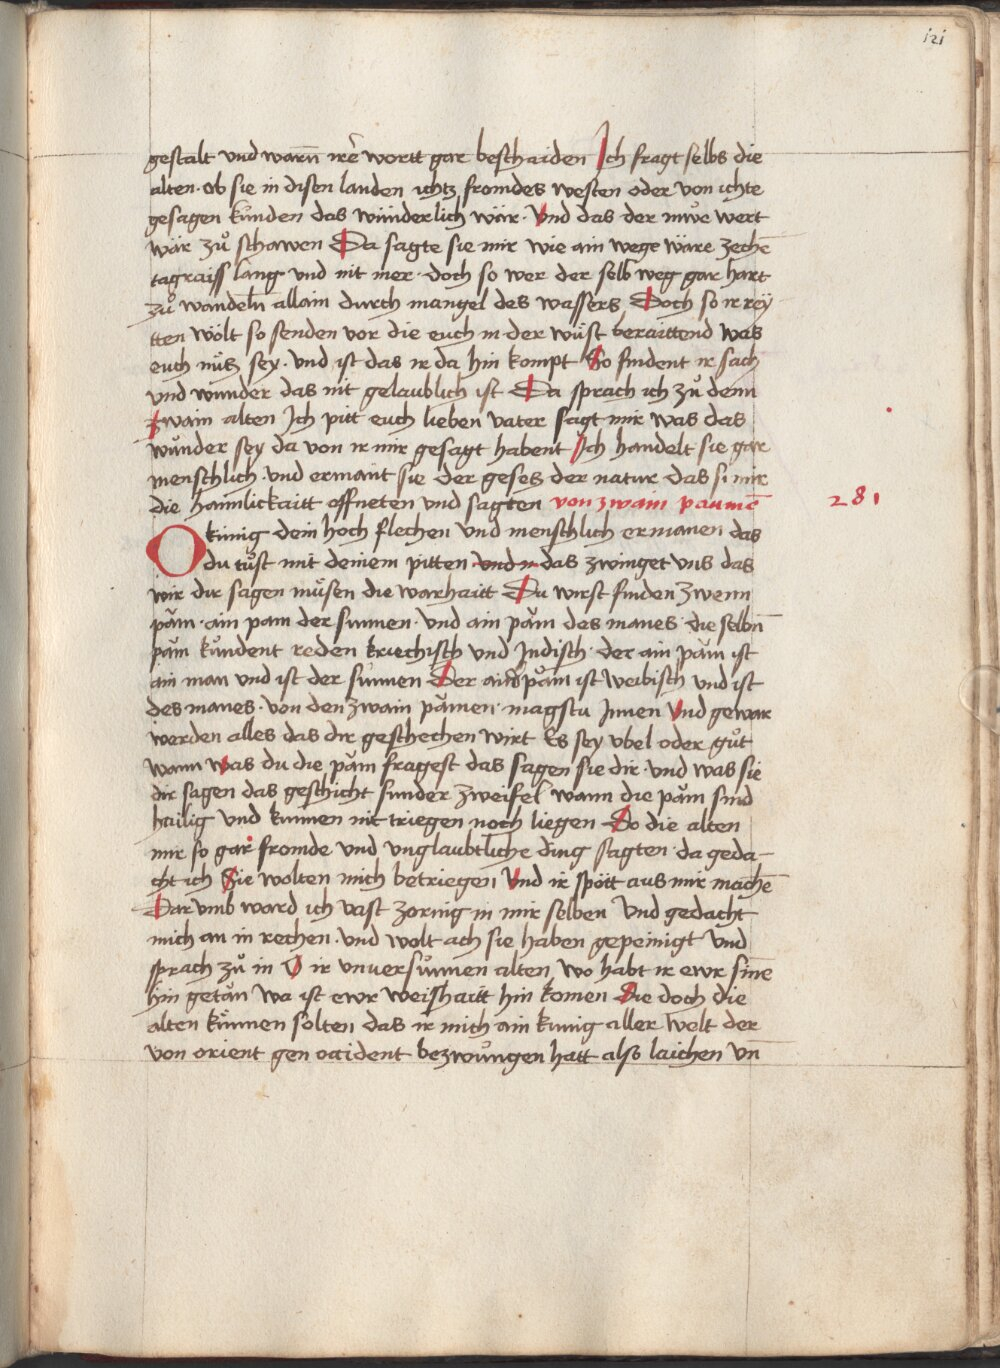 121
gestalt vnd warn̄ irē wortt gar beschaiden Ich fragt selbs die
alten · ob sie in disen landen ichtz fromdes westen oder von ichte
gesagen kunden das wunderlich wär · Vnd das der mwe wert
wär zů schawen Da sagte sie mir wie ain wege wäre zechē
tagraiss lang vnd nit mer · doch so wer der selb weg gar hart
zů wandeln allain durch mangel des wassers Doch so ir rey
tten wölt so senden vor die euch in der wüst beraittend was
euch nücz sey · vnd ist das ir da hin kompt So findent ir sach
vnd wunder das nit gelaublich ist Da sprach ich zů denn
zwain alten Ich pitt euch lieben vater sagt mir was das
wůnder sey da von ir mir gesagt habent Ich handelt sie gar
menschlich · vnd ermant sie der gesecz der natur das si mir
die haimlickaitt offneten vnd sagten von zwain paumē
281
O kunig dein hoch flechen vnd menschlich ermanen das
du tůst mit deinem pitten vnd ir das zwinget vns das
wir dir sagen müsen die warhaitt Du wirst finden zwenn
päm · ain pam der sunnen · vnd ain päm des manes · die selbn̄
päm kůndent reden kriechisch vnd Indisch · der ain päm ist
ain man vnd ist der sunnen Der ander päm ist weibisch vnd ist
des manes · von den zwain pämen · magstu Innen Vnd gewar
werden alles das dir geschechen wirt Es sey vbel oder gůt
wann was du die päm fragest das sagen sie dir · vnd was sie
dir sagen das geschicht sunder zweifel wann die päm sind
hailig vnd kunnen nit triegen noch liegen So die alten
mir so gar fromde vnd vnglaubtliche ding sagten · da geda-
cht ich Sie wolten mich betriegen Vnd ir spött aus mir machē
Darvmb ward ich vast zornig in mir selben Vnd gedacht
mich an in rechen · vnd wolt ach sie haben gepeinigt vnd
sprach zů in O ir vnuersunnen alten wo habt ir ewr sinne
hin getän wa ist ewr weishaitt hin komen Die doch die
alten künnen solten das ir mich ain kunig aller welt der
von orient gen occident bezwůngen hatt also laichen vn̄